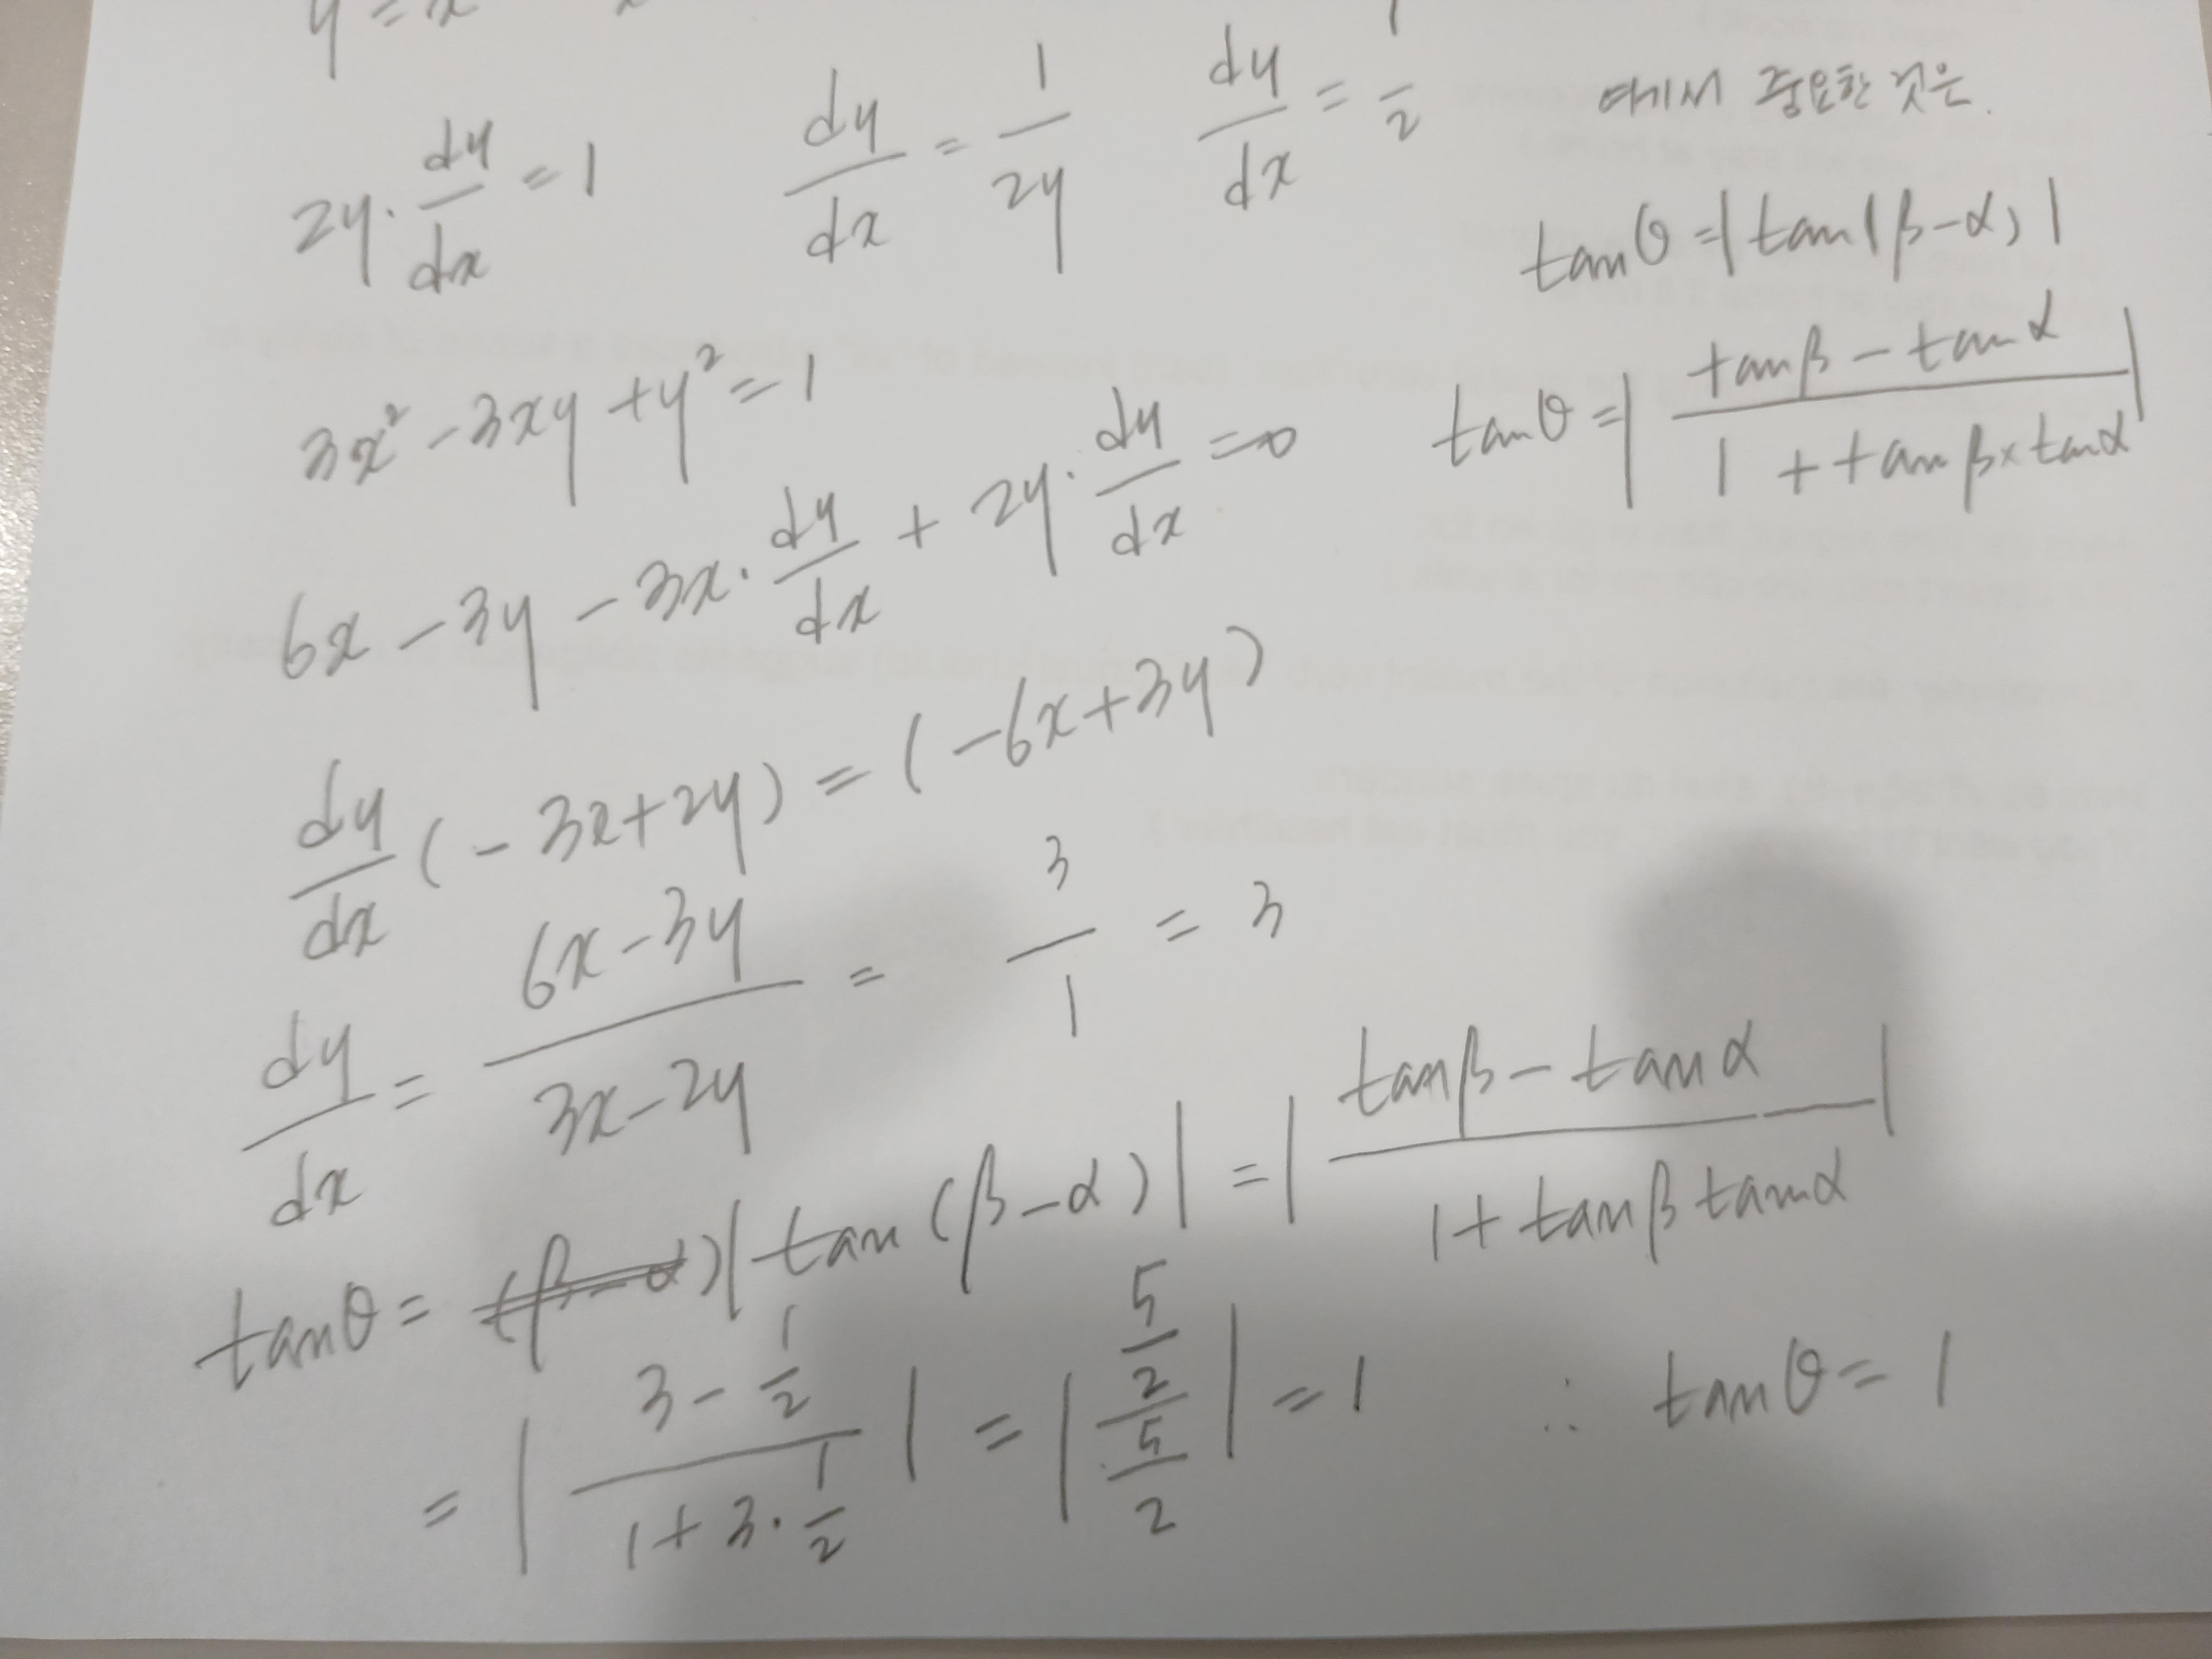 2y·dy/dx = 1   dy/dx = 1/2y   dy/dx = 1/2   에서 중요한 것은.
tanθ = |tan(β-α)|
3x² - 3xy + y² = 1   tanθ = |(tanβ - tanα)/(1 + tanβ×tanα)|
6x - 3y - 3x·dy/dx + 2y·dy/dx = 0
dy/dx (-3x+2y) = (-6x+3y)
dy/dx = (6x-3y)/(3x-2y) = 3/1 = 3
tanθ = |tan(β-α)| = |(tanβ - tanα)/(1+tanβ tanα)|
= |(3 - 1/2)/(1+3·1/2)| = |(5/2)/(5/2)| = 1   ∴ tanθ = 1